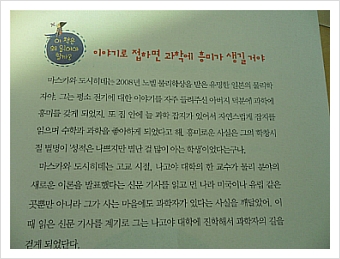 이 책은
왜 읽어야
할까?
이야기로 접하면 과학에 흥미가 생길 거야
마스카와 도시히데는 2008년 노벨 물리학상을 받은 유명한 일본의 물리학
자야. 그는 평소 전기에 대한 이야기를 자주 들려주신 아버지 덕분에 과학에
흥미를 갖게 되었지. 또 집 안에 늘 과학 잡지가 있어서 자연스럽게 잡지를
읽으며 수학과 과학을 좋아하게 되었다고 해. 흥미로운 사실은 그의 학창시
절 별명이 '성적은 나쁘지만 별난 걸 많이 아는 학생'이었다는구나.
마스카와 도시히데는 고교 시절, 나고야 대학의 한 교수가 물리 분야의
새로운 이론을 발표했다는 신문 기사를 읽고 먼 나라 미국이나 유럽 같은
곳뿐만 아니라 그가 사는 마을에도 과학자가 있다는 사실을 깨달았어. 이
때 읽은 신문 기사를 계기로 그는 나고야 대학에 진학해서 과학자의 길을
걷게 되었단다.